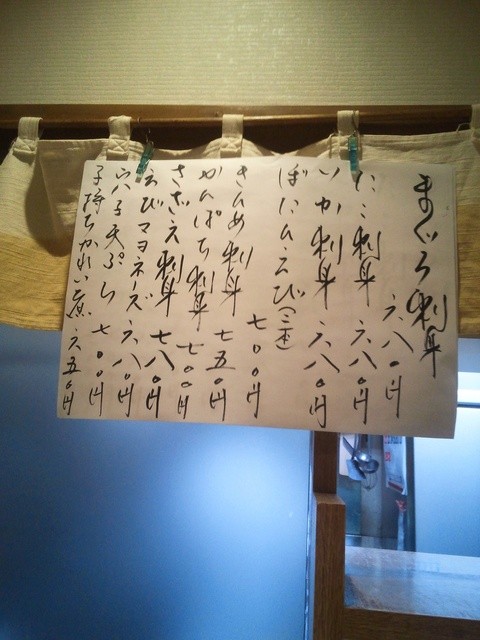 まぐろ刺身
六八〇円
たこ刺身 六八〇円
いか刺身 六八〇円
ぼたんえび(三本)
七〇〇円
きんめ刺身 七五〇円
かんぱち刺身 七〇〇円
さざえ刺身 七八〇円
えびマヨネーズ 六八〇円
穴子天ぷら 七〇〇円
子持ちかれい煮 六五〇円